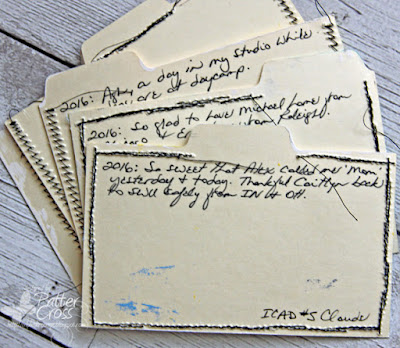 2016: A day in my studio while
are at daycamp.
2016: So glad to have Michael home from
+ from Raleigh.
2016: So sweet that Alex called me "Mom"
yesterday & today. Thankful Caitlyn back
to safely from IN & OH.
ICAD #5 Clouds
Batter
Cross